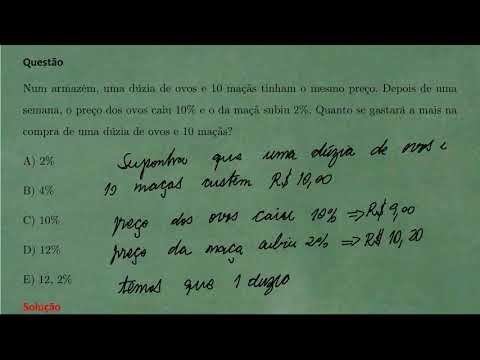 Questão
Num armazém, uma dúzia de ovos e 10 maçãs tinham o mesmo preço. Depois de uma
semana, o preço dos ovos caiu 10% e o da maçã subiu 2%. Quanto se gastará a mais na
compra de uma dúzia de ovos e 10 maçãs?
A) 2%
Suponha que uma dúzia de ovos e
B) 4%
10 maças custem R$ 10,00
C) 10%
preço dos ovos caiu 10% ⇒ R$ 9,00
D) 12%
preço da maça subiu 2% ⇒ R$ 10,20
E) 12, 2%
temos que 1 duzia
Solução